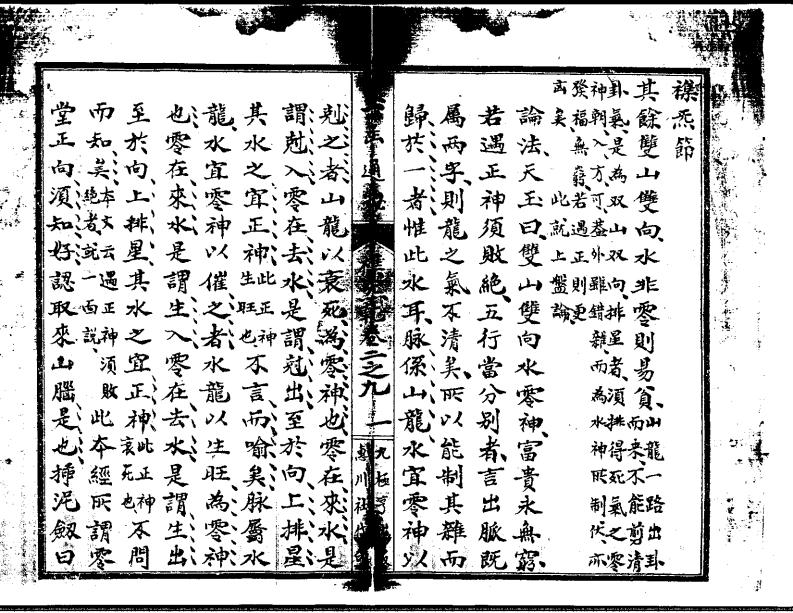 襍炁節
其餘雙山雙向水非零則易貧山龍一路出卦
而来不能剪清
卦氣是為双山双向排星者須排得死氣之零
神朝入方可蓋外雖錯雜而為水神所制伏亦
發福無窮若遇正則更
凶矣 此就上盤論
論法天玉曰雙山雙向水零神富貴永無窮
若遇正神須敗絶五行當分別者言出脈既
属兩字則龍之氣不清矣所以能制其雜而
歸於一者惟此水耳脉係山龍水宜零神以
卷二之九 一
剋之者山龍以衰死為零神也零在來水是
謂尅入零在去水是謂尅出至於向上排星
其水之宜正神此正神
生旺也不言而喻矣脉屬水
龍水宜零神以催之者水龍以生旺為零神
也零在來水是謂生入零在去水是謂生出
至於向上排星其水之宜正神此正神
衰死也不問
而知矣本文云遇正神須敗
絶者或一面説此本經所謂零
堂正向須知好認取來山腦是也挿泥劔曰